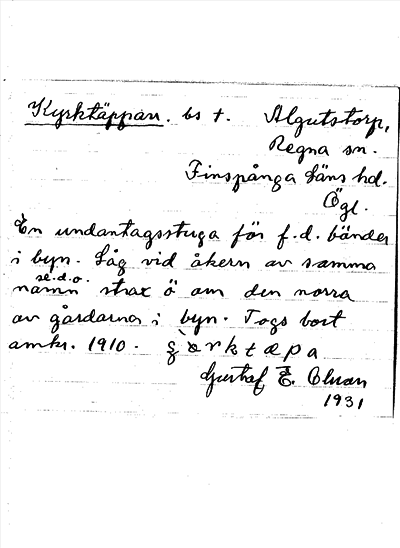 Kyrktäppan. bs t. Algutstorp,
Regna sn.
Finspånga läns hd.
Ögl.
En undantagsstuga för f.d. bönder
i byn. Låg vid åkern av samma
namn se.d.o. strax ö om den norra
av gårdarna i byn. Togs bort
omkr. 1910. 
Gustaf E.
1931